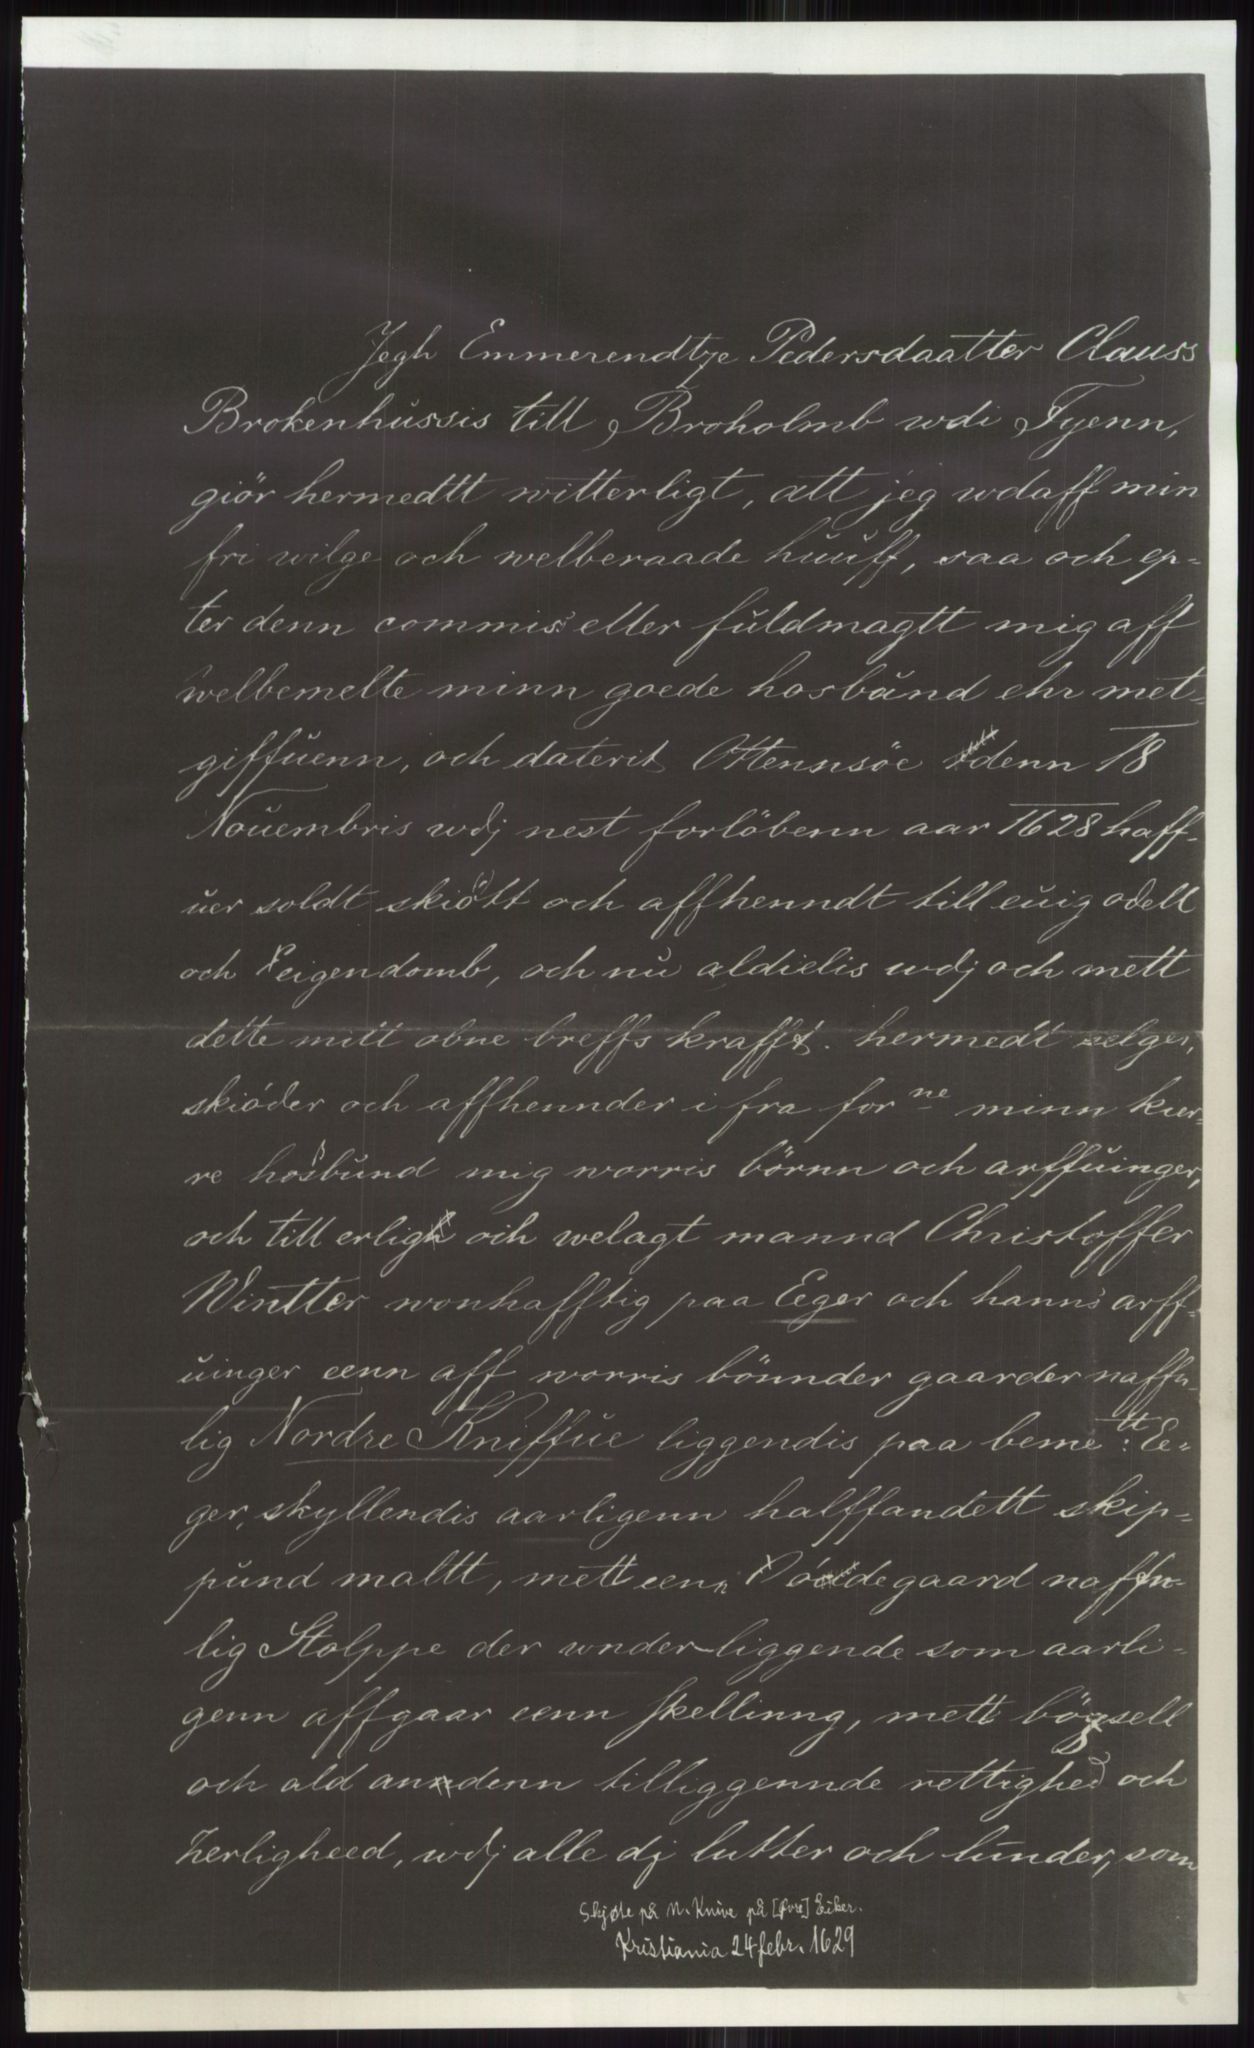 Jegh Emmerendtze Pedersdaatter Clauss
Brokenhussis till Broholmb wdi Fyenn,
giör hermedtt witterligt, att jeg wdaff min
fri wilge och welberaade huuff, saa och ep-
ter denn commis: eller fuldmagtt mig aff
welbemelte minn goede hosbånd ehr met-
giffuenn, och daterit Ottennsöe denn 18
Nouembris wdj nest forlöbenn aar 1628 haff-
uer soldt skiött och affhenndt till euig odell
och eigendomb, och nu aldielis wdj och mett
dette mitt obne breffs krafft. hermedt selger,
skiöder och affhennder i fra for ne minn kier-
re hosbund mig worris börnn och arffuinger,
och till erlig och welagt mannd Christoffer
Wintter wonhafftig paa Eger och hanns arff-
uinger eenn aff worris bönnder gaarder naffn-
lig Nordre Kniffue liggendis paa beme:tt Ee-
ger, skyllendis aarligenn halffandett skip-
pund maltt, mett eenn ödegaard naffn-
lig Stolppe der wnder liggende som aarli-
genn affgaar eenn skellinng, mett böygsell
och ald anndenn tilliggennde rettighed och
herligheed, wdj alle dj lutter och lunder, som
Skjøte på N. Knive på [Øvre] Eiker.
Kristiania 24 febr. 1629